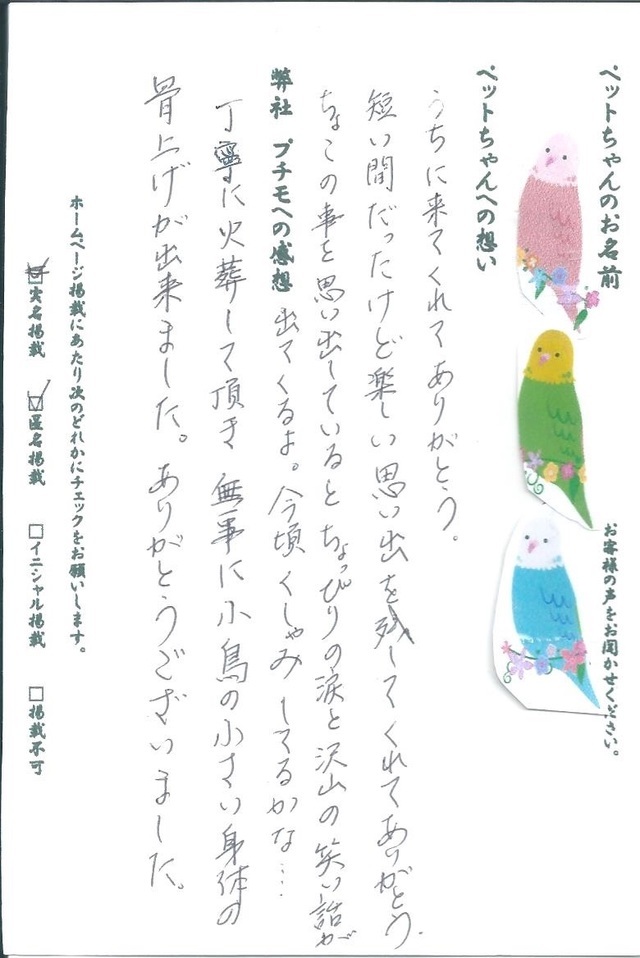 ペットちゃんのお名前
お客様の声をお聞かせください。
ペットちゃんへの想い
うちに来てくれてありがとう。
短い間だったけど楽しい思い出を残してくれてありがとう.
ちょこの事を思い出しているとちょっぴりの涙と沢山の笑い話が
出てくるよ。今頃くしゃみしてるかな…
弊社 プチモへの感想
丁寧に火葬して頂き 無事に小鳥の小さい身体の
骨上げが出来ました。ありがとうございました。
ホームページ掲載にあたり次のどれかにチェックをお願いします。
実名掲載 匿名掲載 イニシャル掲載 掲載不可